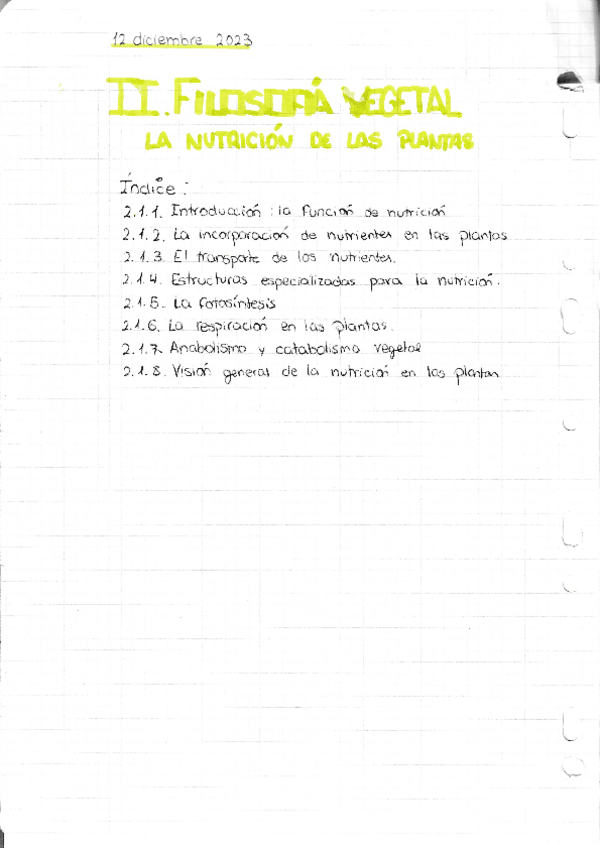 12 diciembre 2023
II. FILOSOFÍA VEGETAL
LA NUTRICIÓN DE LAS PLANTAS
Índice:
2.1.1. Introducción: la función de nutrición
2.1.2. La incorporación de nutrientes en las plantas
2.1.3. El transporte de los nutrientes.
2.1.4. Estructuras especializadas para la nutrición.
2.1.5. La fotosíntesis
2.1.6. La respiración en las plantas.
2.1.7. Anabolismo y catabolismo vegetal
2.1.8. Visión general de la nutrición en las plantas